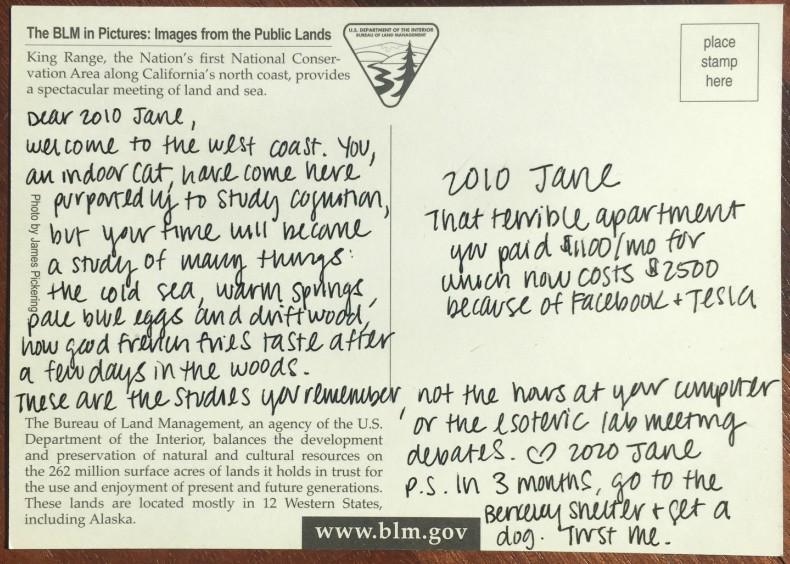 The BLM in Pictures: Images from the Public Lands
King Range, the Nation's first National Conser-
vation Area along California's north coast, provides
a spectacular meeting of land and sea.
U.S. DEPARTMENT OF THE INTERIOR
BUREAU OF LAND MANAGEMENT
place
stamp
here
Dear 2010 Jane,
welcome to the west coast. You,
an indoor cat, have come here
purportedly to study cognition,
but your time will become
a study of many things:
the cold sea, warm springs,
pale blue eggs and driftwood,
how good french fries taste after
a few days in the woods.
These are the studies you remember,
not the hours at your computer
or the esoteric lab meeting
debates. ♡ 2020 Jane
p.s. In 3 months, go to the
Berkeley shelter + get a
dog. Trust me.
2010 Jane
That terrible apartment
you paid $1100/mo for
which now costs $2500
because of Facebook + Tesla
Photo by James Pickering
The Bureau of Land Management, an agency of the U.S.
Department of the Interior, balances the development
and preservation of natural and cultural resources on
the 262 million surface acres of lands it holds in trust for
the use and enjoyment of present and future generations.
These lands are located mostly in 12 Western States,
including Alaska.
www.blm.gov